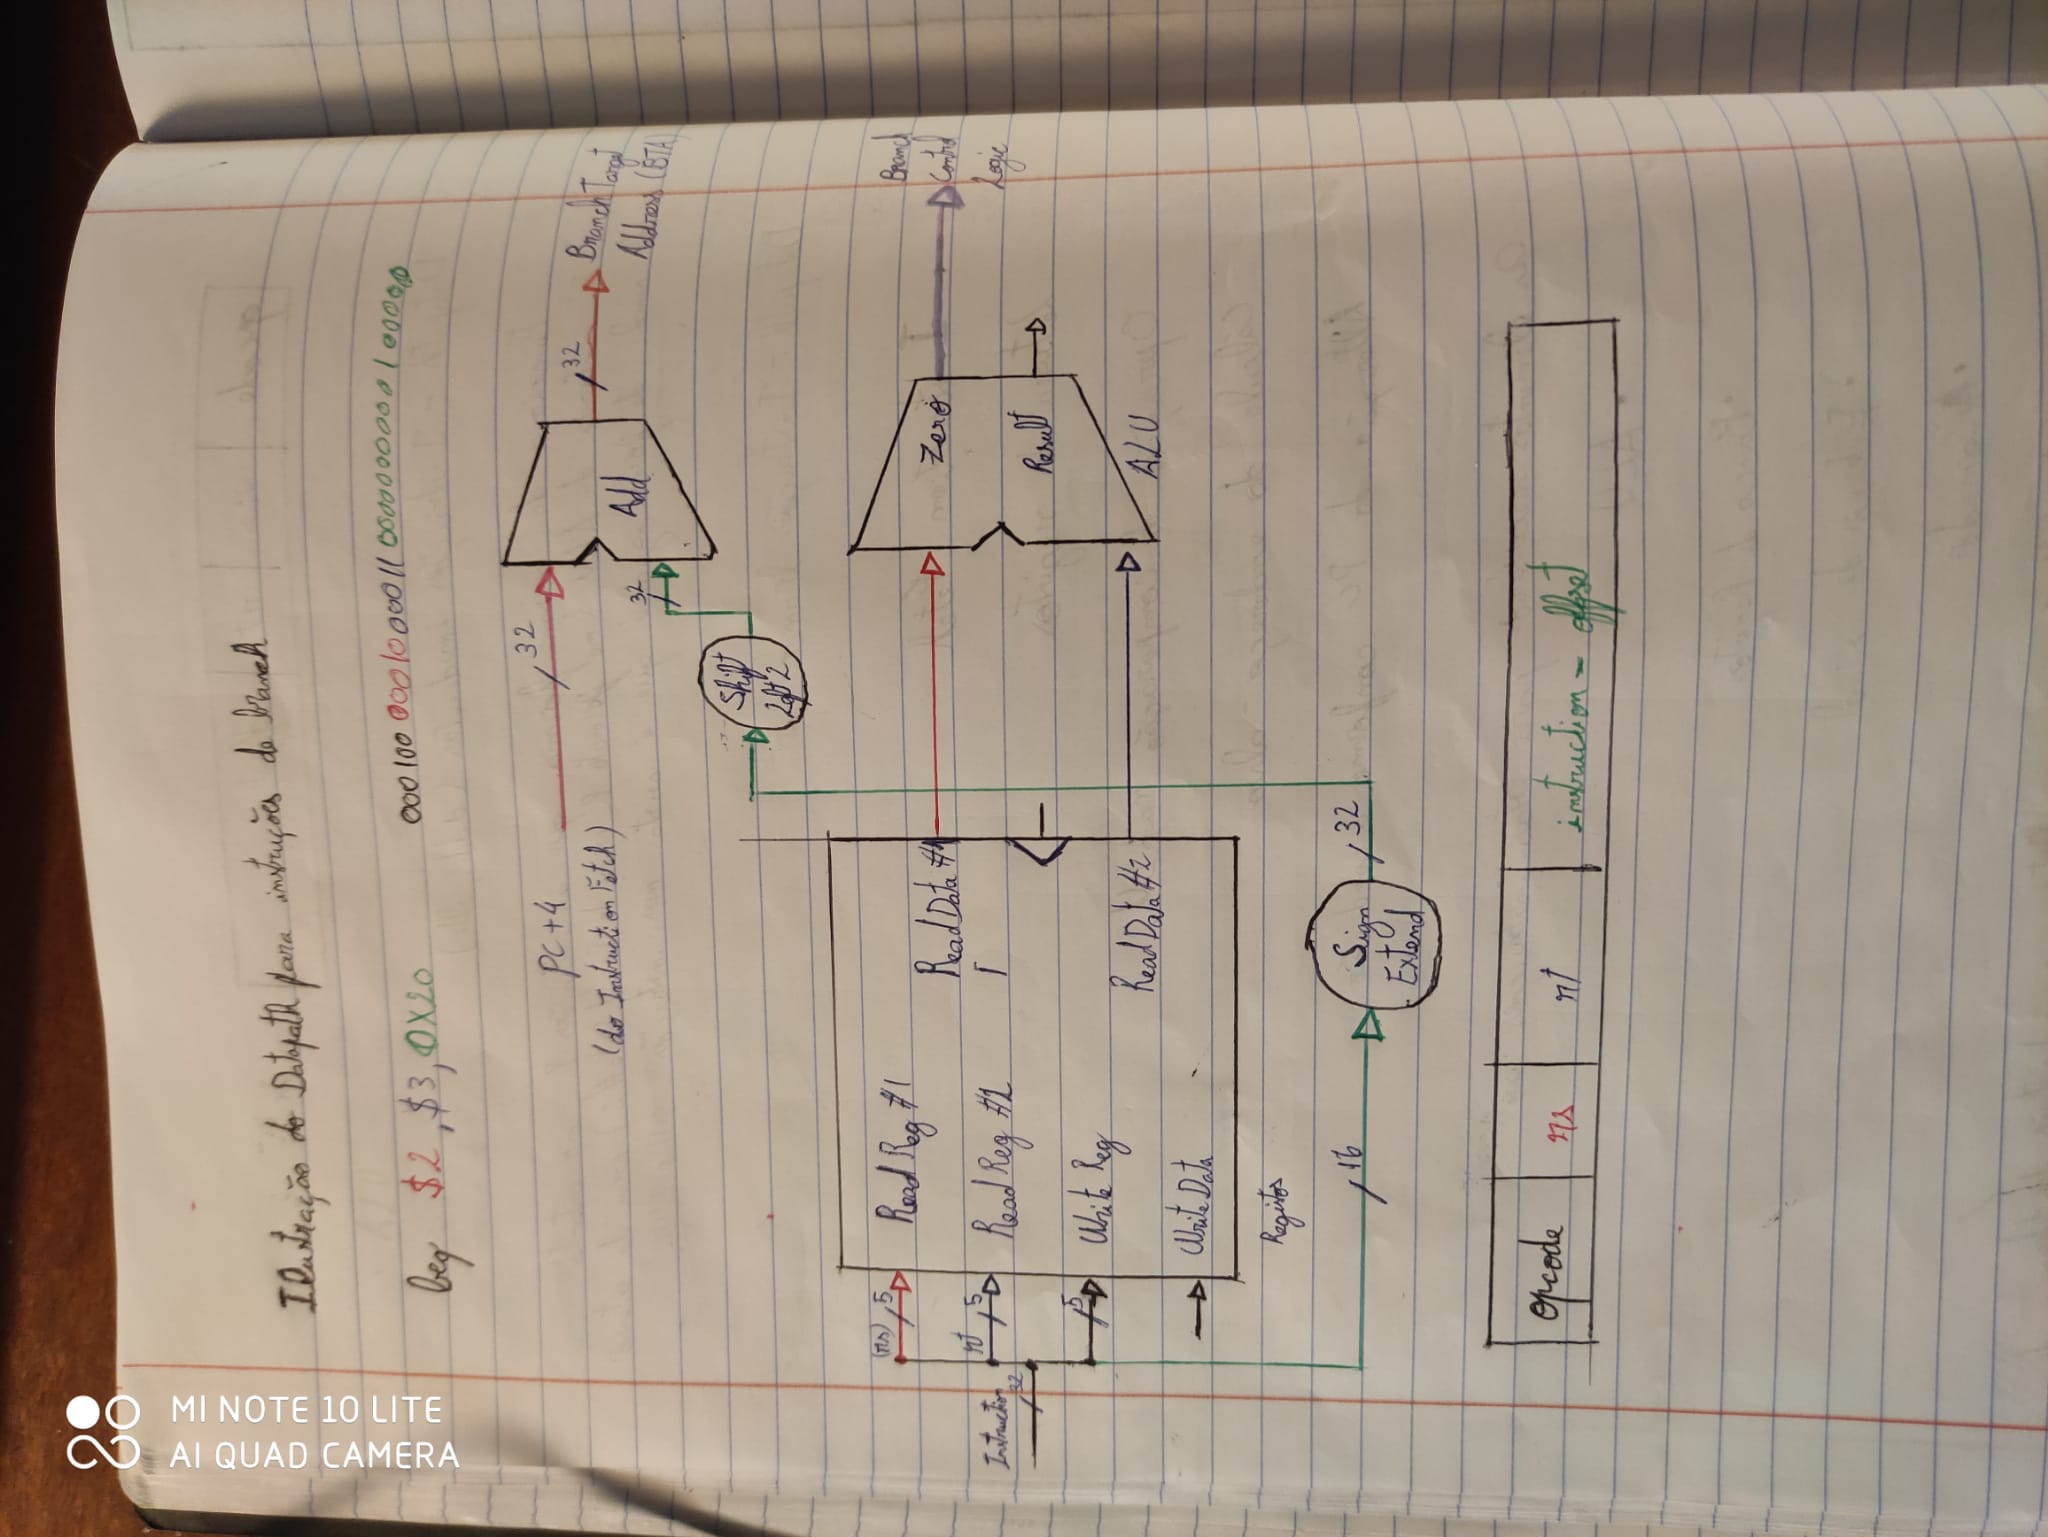 MI NOTE 10 LITE
AI QUAD CAMERA
Ilustração do Datapath para instruções de branch
beq $2, $3, 0X20
000100 00010 00011 0000000000100000
PC+4
(do Instruction Fetch)
32
32
Add
32
Branch Target
Address (BTA)
Shift
Left 2
(rs) 5
Read Reg #1
Read Data #1
rt 5
Read Reg #2
Instruction
32
5
Write Reg
Read Data #2
Write Data
Registos
Zero
Result
ALU
Branch
Control
Logic
16
Sign
Extend
32
opcode rs rt instruction - offset